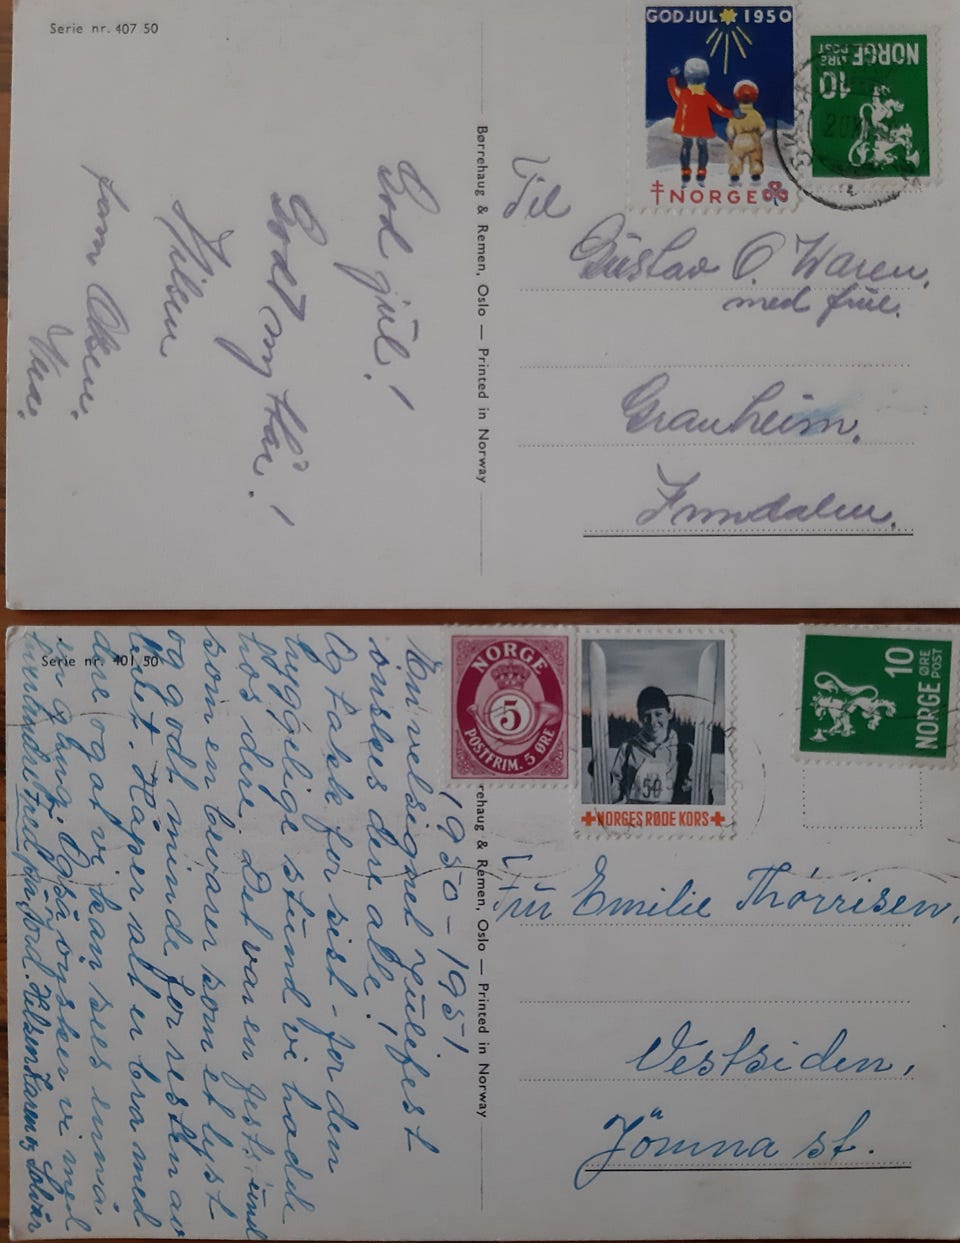 Serie nr. 407 50
GOD JUL 1950
NORGE
NORGE
ØRE
POST
10
Børrehaug & Remen, Oslo — Printed in Norway
Til
Gustav O. Waren.
med frue.
Granheim.
God jul!
Godt nytt år!
Hilsen
Serie nr. 401 50
NORGE
5
POSTFRIM. 5 ØRE
50
NORGES RØDE KORS
10
NORGE
ØRE
POST
rrehaug & Remen, Oslo — Printed in Norway
Fru Emilie Thorrisen,
Vestsiden,
Jömna st.
1950–1951
En velsignet julefest
önskes dere alle!
Og takk for sist - for den
hyggelige stund vi hadde
hos dere. Det var en fest
som en bevarer som et lyst
og godt minde for resten av
livet. Håper alt er bra med
dere og at vi kan sees ennå
en gang. Også önsker vi med
hverandre Fred på jord. Hilsen Karen og